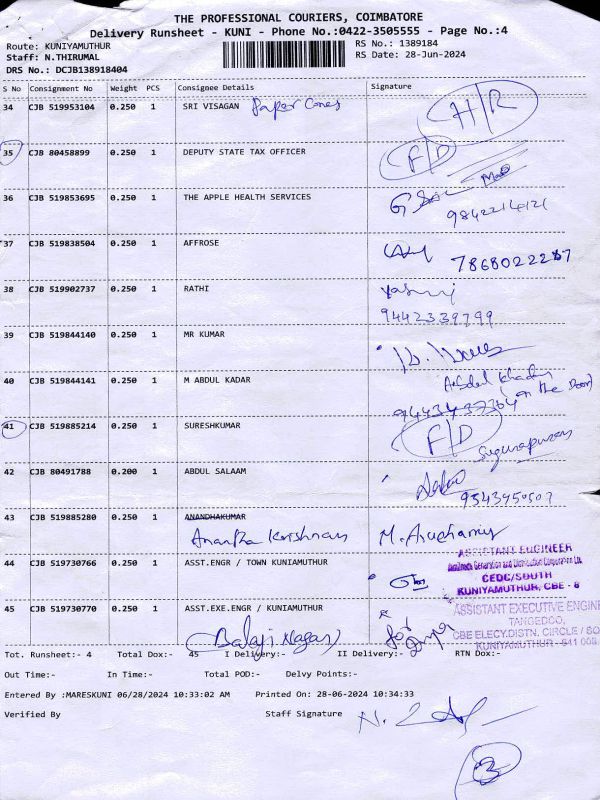 THE PROFESSIONAL COURIERS, COIMBATORE
Delivery Runsheet - KUNI - Phone No.:0422-3505555 - Page No.:4
Route: KUNIYAMUTHUR RS No.: 1389184
Staff: N.THIRUMAL RS Date: 28-Jun-2024
DRS No.: DCJB138918404
S No Consignment No Weight PCS Consignee Details Signature
34 CJB 519953104 0.250 1 SRI VISAGAN Paper Cones H/R
35 CJB 80458899 0.250 1 DEPUTY STATE TAX OFFICER F/D
36 CJB 519853695 0.250 1 THE APPLE HEALTH SERVICES
9842214121
37 CJB 519838504 0.250 1 AFFROSE
38 CJB 519902737 0.250 1 RATHI
9442339799
39 CJB 519844140 0.250 1 MR KUMAR
40 CJB 519844141 0.250 1 M ABDUL KADAR Abdul Khadar
on the Door
41 CJB 519885214 0.250 1 SURESHKUMAR F/D
42 CJB 80491788 0.200 1 ABDUL SALAAM
43 CJB 519885280 0.250 1 ANANDHAKUMAR
Anantha Krishnan
44 CJB 519730766 0.250 1 ASST.ENGR / TOWN KUNIAMUTHUR
ASSISTANT ENGINEER
CEDC/SOUTH
KUNIYAMUTHUR, CBE - 8
45 CJB 519730770 0.250 1 ASST.EXE.ENGR / KUNIAMUTHUR
Balaji Nagar
ASSISTANT EXECUTIVE ENGINE
TANGEDCO,
CBE ELECY.DISTN. CIRCLE / SO
KUNIYAMUTHUR - 641 008
Tot. Runsheet:- 4 Total Dox:- 45 I Delivery:- II Delivery:- RTN Dox:-
Out Time:- In Time:- Total POD:- Delvy Points:-
Entered By :MARESKUNI 06/28/2024 10:33:02 AM Printed On: 28-06-2024 10:34:33
Verified By Staff Signature
3